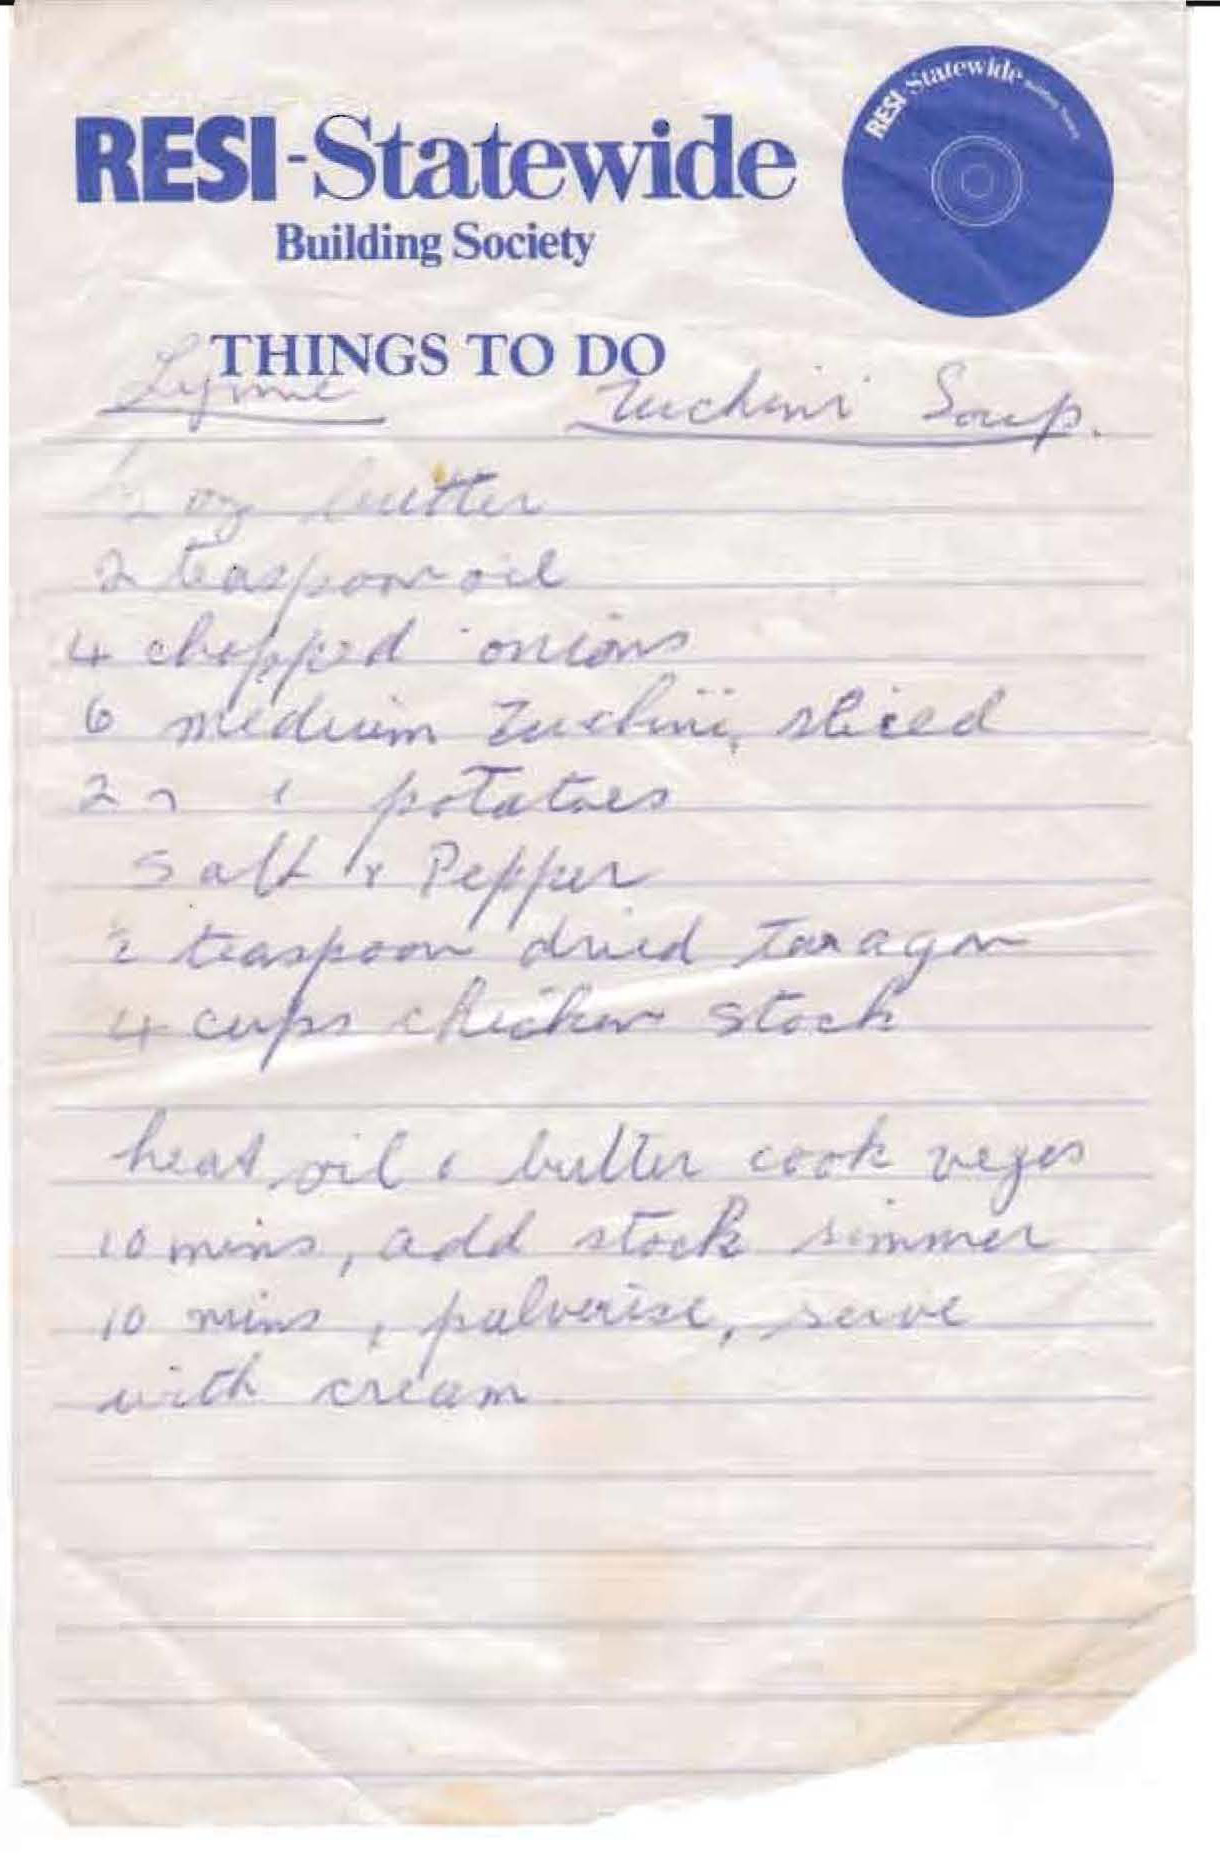 RESI-Statewide
Building Society
RESI-Statewide Building Society
THINGS TO DO
Lynne Zuchini Soup.
½ oz butter
2 teaspoon oil
4 chopped onions
6 medium Zuchini, sliced
2 " " potatoes
Salt & Pepper
½ teaspoon dried Taragon
4 cups chicken stock
heat oil & butter cook veges
10 mins, add stock simmer
10 mins, pulverise, serve
with cream